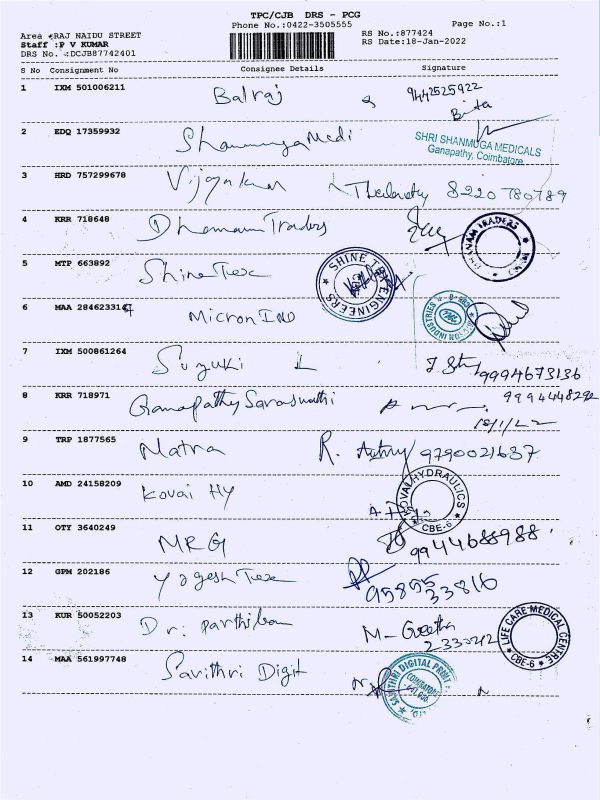 TPC/CJB DRS - PCG
Phone No.:0422-3505555 Page No.:1
Area :RAJ NAIDU STREET
RS No.:877424
Staff :P V KUMAR
RS Date:18-Jan-2022
DRS No. :DCJB87742401
S No Consignment No Consignee Details Signature
1 IXM 501006211 Balraj 9442525922
2 EDQ 17359932 Shanmuga Medi
SHRI SHANMUGA MEDICALS
Ganapathy, Coimbatore
3 HRD 757299678 8220780789
4 KRR 718648 Dhanam Traders
DHANAM TRADERS
5 MTP 663892 Shine Tex
SHINE TEX ENGINEERS
6 MAA 284623314 Micron IND
INDUSTRIES
7 IXM 500861264 Suzuki
9994673136
8 KRR 718971 Ganapathy Saraswathi
9994448292
9 TRP 1877565 Matra R. 9790021637
10 AMD 24158209 Kovai HY
KOVAI HYDRAULICS
CBE-6
11 OTY 3640249 MRG 9944688988
12 GPM 202186 Yogesh Tex
9585533816
13 KUR 50052203 Dr. Parthiban M-Geetha
LIFE CARE MEDICAL CENTRE
CBE-6
14 MAA 561997748 Savithri Digit
DIGITAL